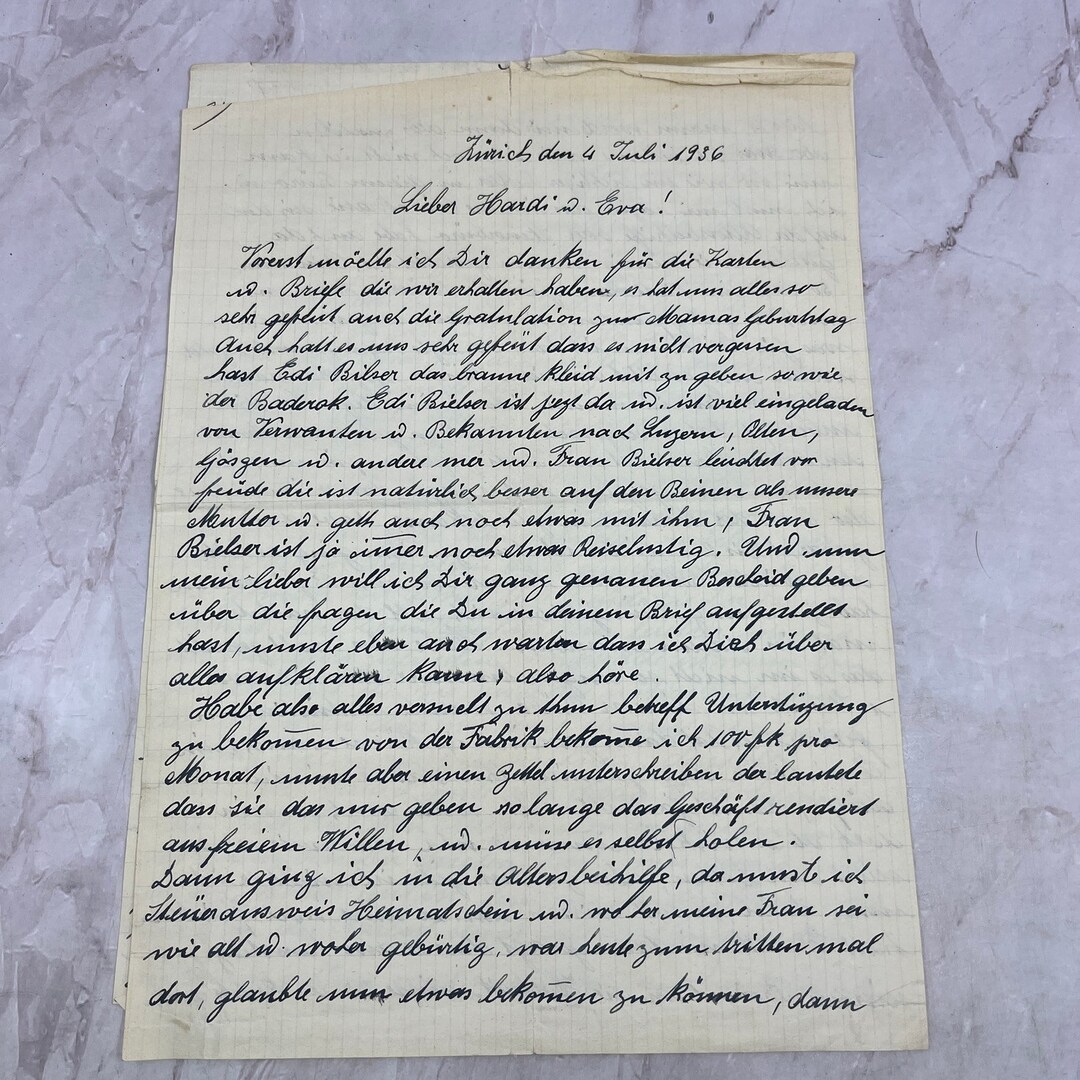 Zürich den 4 Juli 1936
Lieber Hardi u. Eva!
Vorerst möchte ich Dir danken für die Karten
u. Briefe die wir erhalten haben, es hat uns alles so
sehr gefreüt auch die Gratulation zur Mamas Geburtstag
Auch hatt es uns sehr gefreüt dass es nicht vergessen
hast Edi Bilser das braune Kleid mit zu geben so wie
der Baderok. Edi Bielser ist jezt da u. ist viel eingeladen
von Verwanten u. Bekannten nach Luzern, Olten,
Gösgen u. andere mer u. Frau Bielser leuchtet vor
freüde die ist natürlich besser auf den Beinen als unsere
Mutter u. geth auch noch etwas mit ihm, Frau
Bielser ist ja im̅er noch etwas Reiselustig. Und nun
mein lieber will ich Dir ganz genauen Bescheid geben
über die fragen die Du in deinem Brief aufgestellt
hast, muste eben auch warten dass ich Dich über
alles aufklären kann, also höre.
Habe also alles versucht zu thun betreff Unterstüzung
zu beko̅men von der Fabrik beko̅me ich 100 fk pro
Monat, muste aber einen Zettel unterschreiben der lautete
dass sie das nur geben so lange das Geschäft rendiert
aus freiem Willen, u. müse es selbst holen.
Dann ging ich in die Altersbeihilfe, da musste ich
Steüerausweis Heimatschein u. woher meine Frau sei
wie alt u. woher gebürtig, war heute zum tritten mal
dort, glaubte nun etwas beko̅men zu können, dann